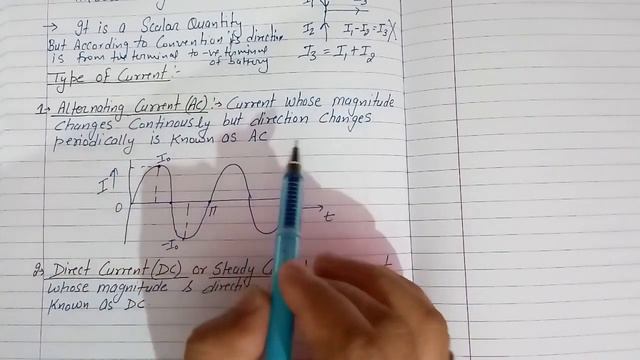 → It is a Scalar Quantity
But According to Convention its direction
is from +ve terminal to -ve terminal
of battery
I₂ I₁-I₂=I₃
I₃ = I₁+I₂
Type of Current:-
1→ Alternating Current (AC):→ Current whose magnitude
changes Continously but direction changes
periodically is known as AC
I↑ I₀
0 π t
I₀
2→ Direct Current (DC) or Steady
whose magnitude &
known as DC